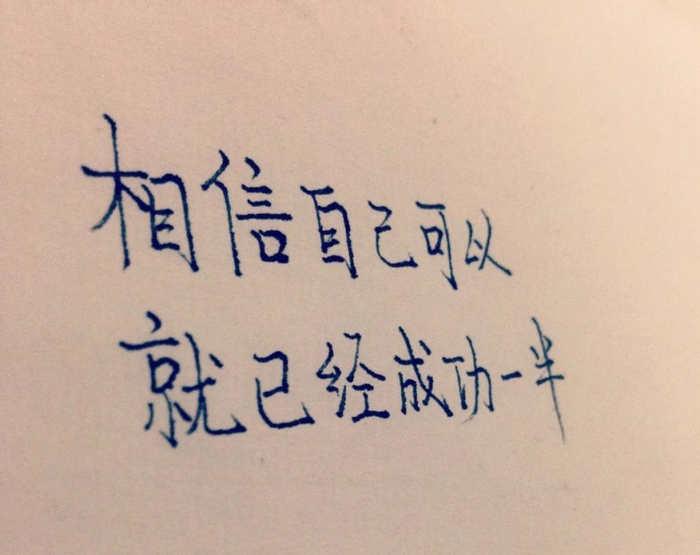 相信自己可以
就已经成功一半